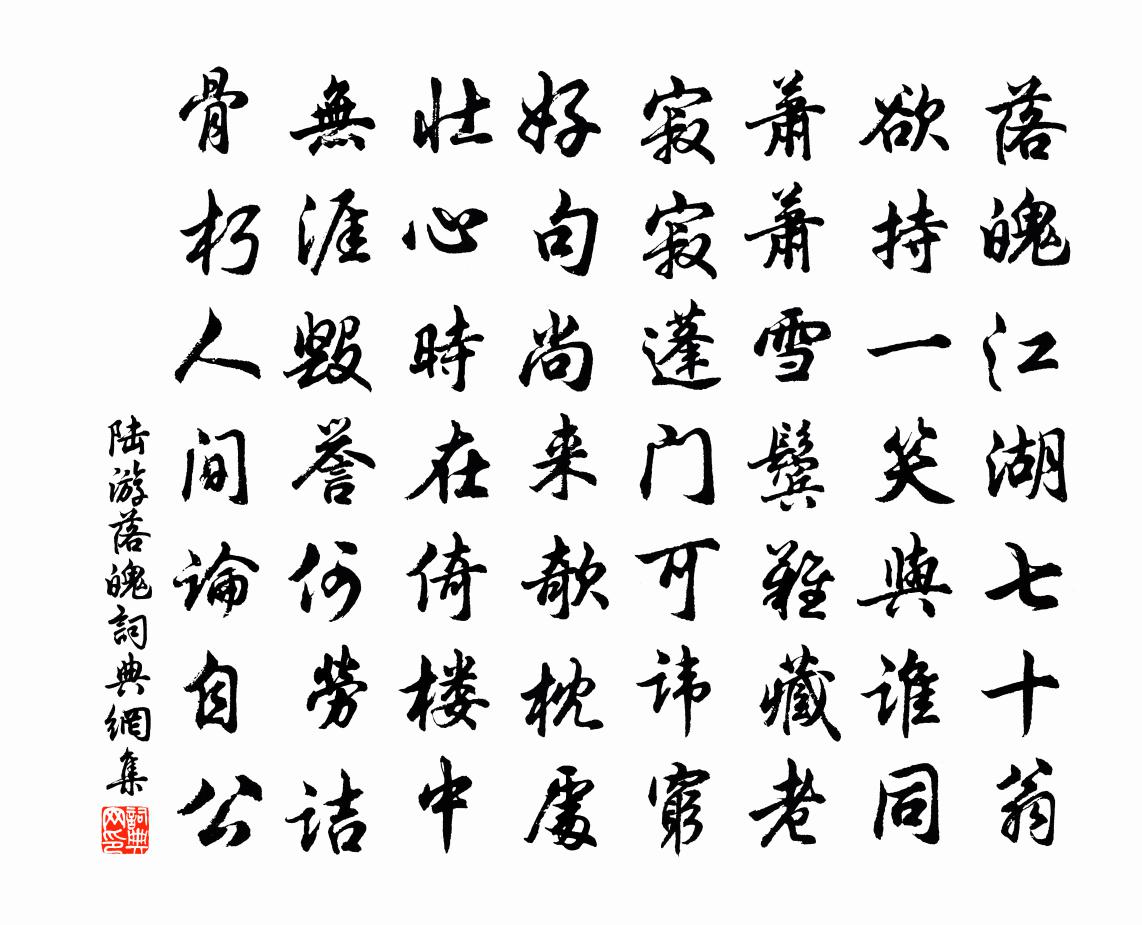 落魄江湖七十翁
欲持一笑與誰同
蕭蕭雪鬢難藏老
寂寂蓬门可讳窮
好句尚来欹枕處
壮心時在倚楼中
無涯毀譽何勞詰
骨朽人间論自公
陆游落魄詞典網集
詞典网印